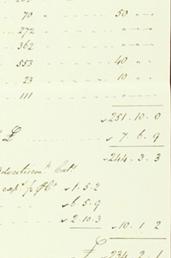 70 - - - 50 - -
272 - - - - - -
362 - - - - - -
553 - - - 40 - -
23 - - - 10 - -
111 - - - - - -
251.10.0
7.6.9
244.3.3
1.5.2
6.5.9
2.10.3
10.1.2
£ 234.2.1